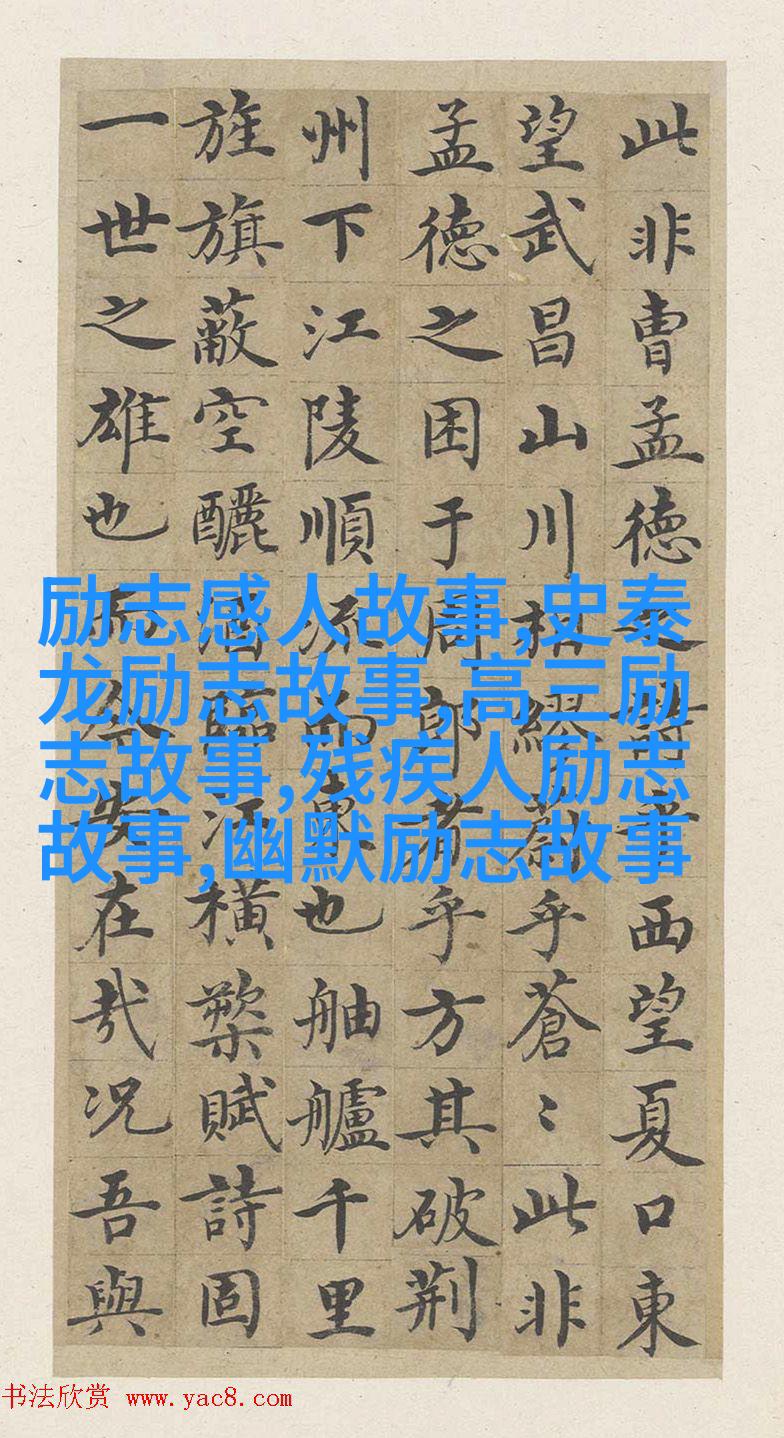 此非曹孟德之詩乎西望夏口東
望武昌山川相繆蔚乎蒼〻此非
孟德之困于周郎者乎方其破荊
州下江陵順流而東也舳艫千里
旌旗蔽空釃酒臨江橫槊賦詩固
一世之雄也而今安在哉況吾與
励志感人故事,史泰
龙励志故事,高三励
志故事,残疾人励志
故事,幽默励志故事
书法欣赏 www.yac8.com